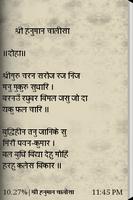 श्री हनुमान चालीसा
॥दोहा॥
श्रीगुरु चरन सरोज रज निज
मनु मुकुरु सुधारि ।
बरनउं रघुबर बिमल जसु जो दा
यकु फल चारि ॥
बुद्धिहीन तनु जानिके सु
मिरौं पवन-कुमार ।
बल बुधि विद्या देहु मोहिं
हरहु कलेस बिकार ॥
10.27% | श्री हनुमान चालीसा 11:45 PM